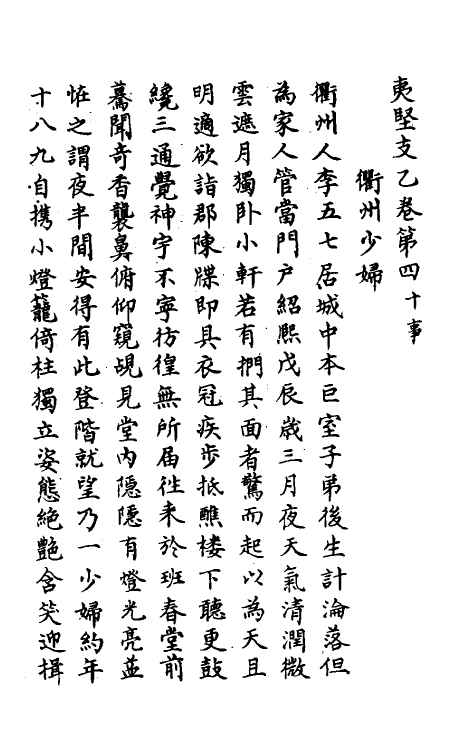 夷堅支乙卷第四十事
衢州少婦
衢州人李五七居城中本巨室子弟後生計淪落但
為家人管當門戶紹熙戊辰歲三月夜天氣清潤微
雲遮月獨卧小軒若有捫其面者驚而起以為天且
明適欲詣郡陳牒即具衣冠疾步抵醮楼下聽更鼓
纔三通覺神宇不寧彷徨無所届徃来於班春堂前
驀聞奇香襲鼻俯仰窺覘見堂內隱隱有燈光亮益
恠之謂夜半間安得有此登階就望乃一少婦約年
十八九自攜小燈籠倚柱獨立姿態絕艷含笑迎揖